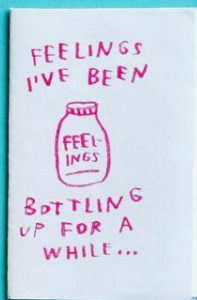 FEELINGS
I'VE BEEN
FEEL-
INGS
BOTTLING
UP FOR A
WHILE...